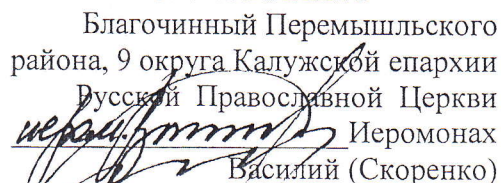 Благочинный Перемышльского
района, 9 округа Калужской епархии
Русской Православной Церкви
иером. Иеромонах
Василий (Скоренко)